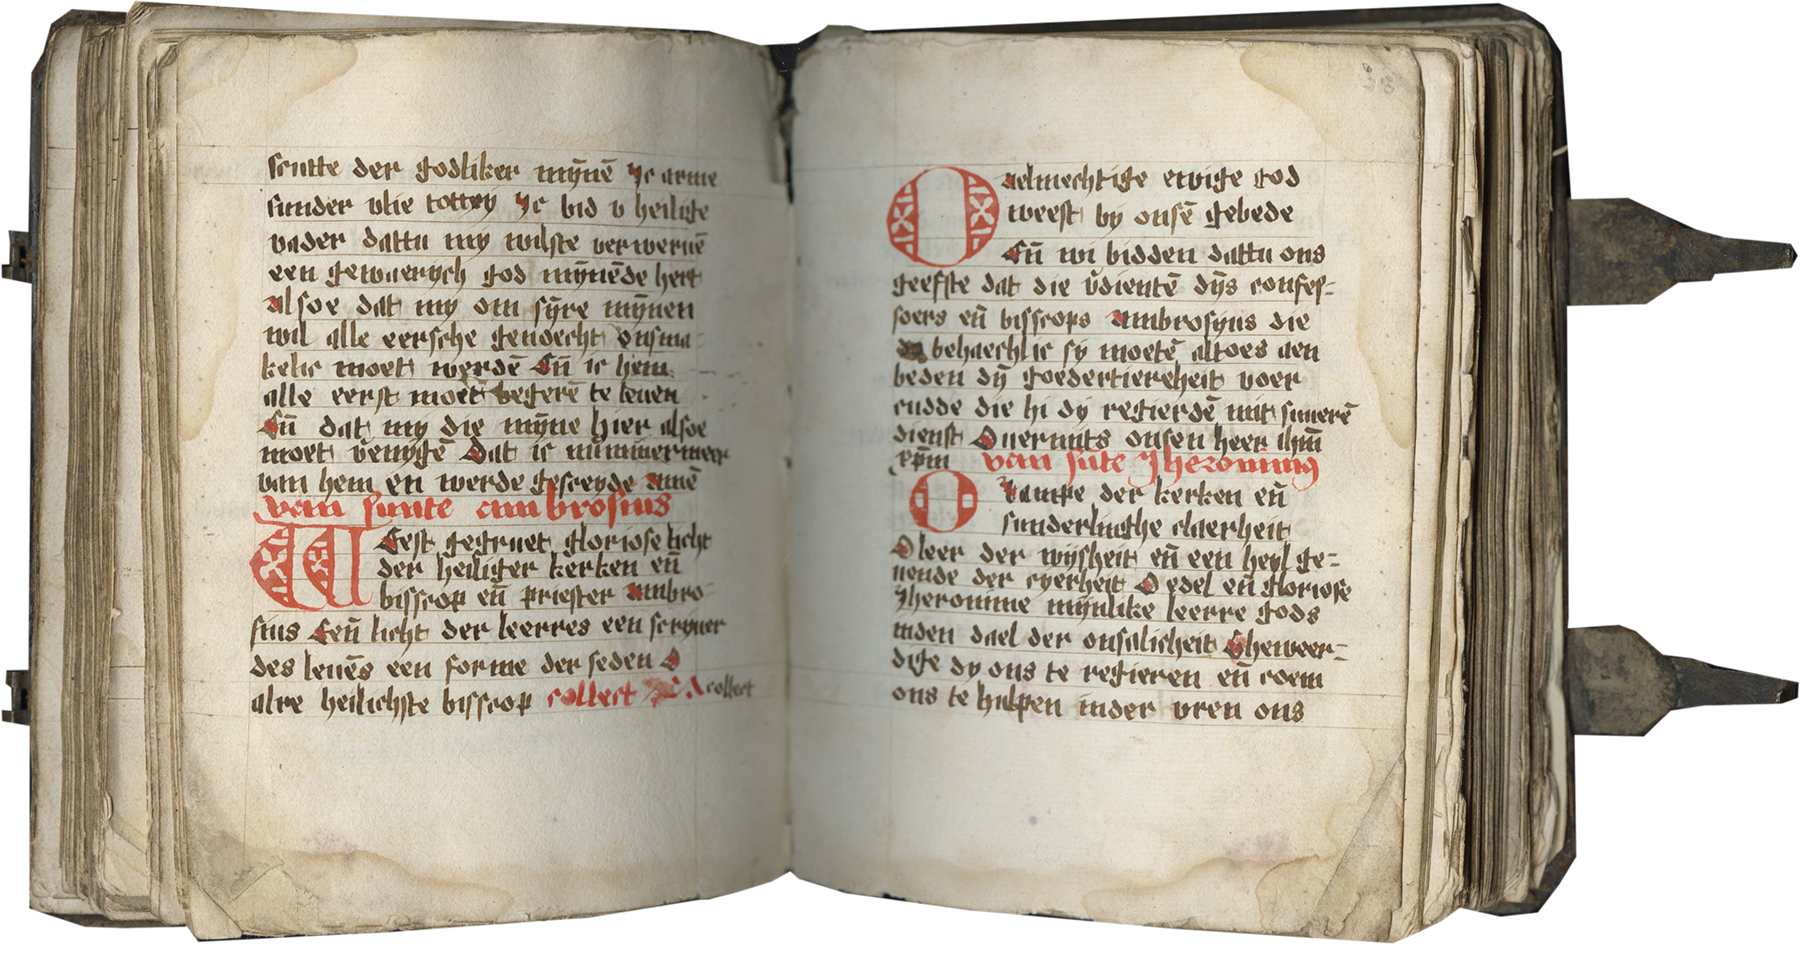 scutte der godliker mȳnē Ic arme
sunder vlie tottey Ic bid v heilige
vader dattu my wilste verweruē
een gewaerych god mȳnēde hert
alsoe dat my om sȳre mȳnen
wil alle eersche genoecht onsma
kelic moet werdē En̄ ic hem
alle eerst moet begerē te leuen
En̄ dat my die mȳne hier alsoe
moet v̄enygē Dat ic nummermeer
van hem en werde gesceyde amē
van sunte ambrosius
Weest gegruet gloriose licht
der heiliger kerken en̄
bisscop en̄ priester ambro
sius Een̄ licht der leerres een scryuer
des leuēs een forme der seden O
alre heilichste bisscop collect collect
O aelmechtige ewige god
weest by onsē gebede
En̄ wi bidden dattu ons
geefste dat die v̄dientē dȳs confes=
soers en̄ bisscops ambrosyus die
behaechlic sy moetē altoes aen
beden dȳ goedertierenheit voer
rudde die hi dy regierdē mit sinerē
dienst Ouermits onsen heer ihm̄
xp̄m van sūte Iheronimus
O lampe der kerken en̄
sunderlinghe claerheit
O leer der wijsheit en̄ een heyl ge=
nende der cyerheit O edel en̄ gloriose
Iheronime mynlike leerre gods
inden dael der onsalicheit Gheweer=
dige dy ons te regieren en̄ coem
ons te hulpen inder vren ons